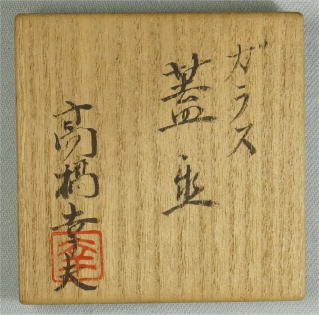 ガラス
蓋置
高橋幸夫
幸